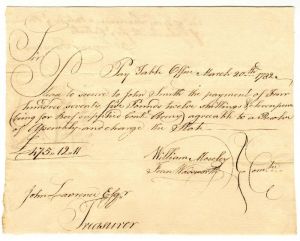 Sir
Pay Table Office March 20th 1782
Please to secure to John Smith the payment of Four
hundred seventy five Pounds twelve shillings &
being for Beef supplied Contl Army agreable to a Resolve
of Assembly and charge the State
£475.12.11
William Moseley
Comtee
John Lawrence Esqr
Treasurer